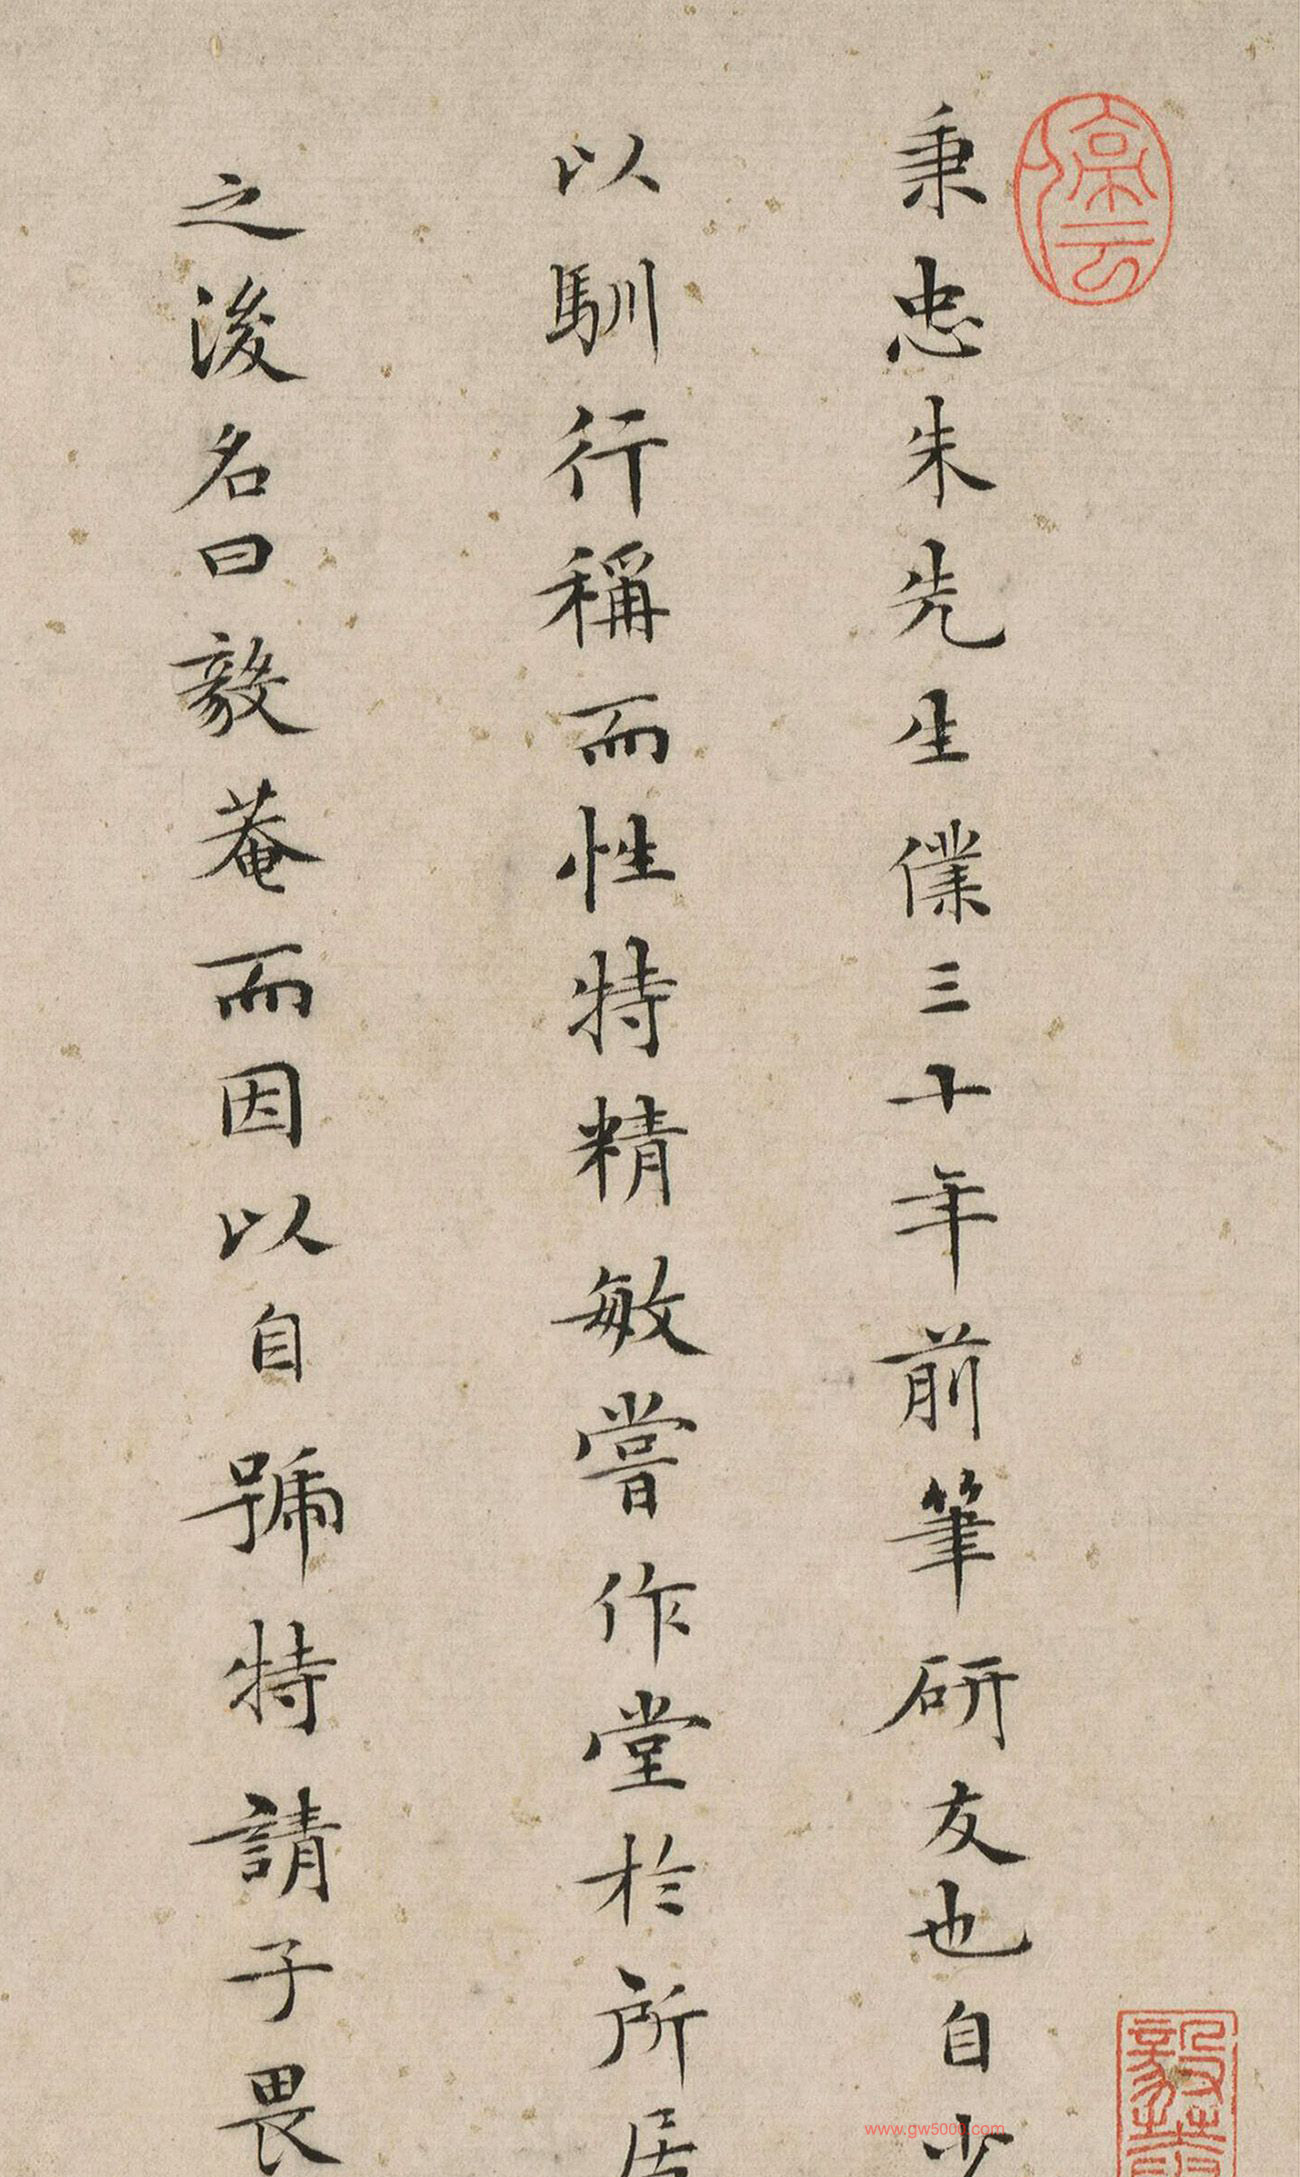 秉忠朱先生僕三十年前筆研友也自少
以馴行稱而性特精敏嘗作堂於所居
之後名曰毅菴而因以自號特請子畏
www.gw5000.com